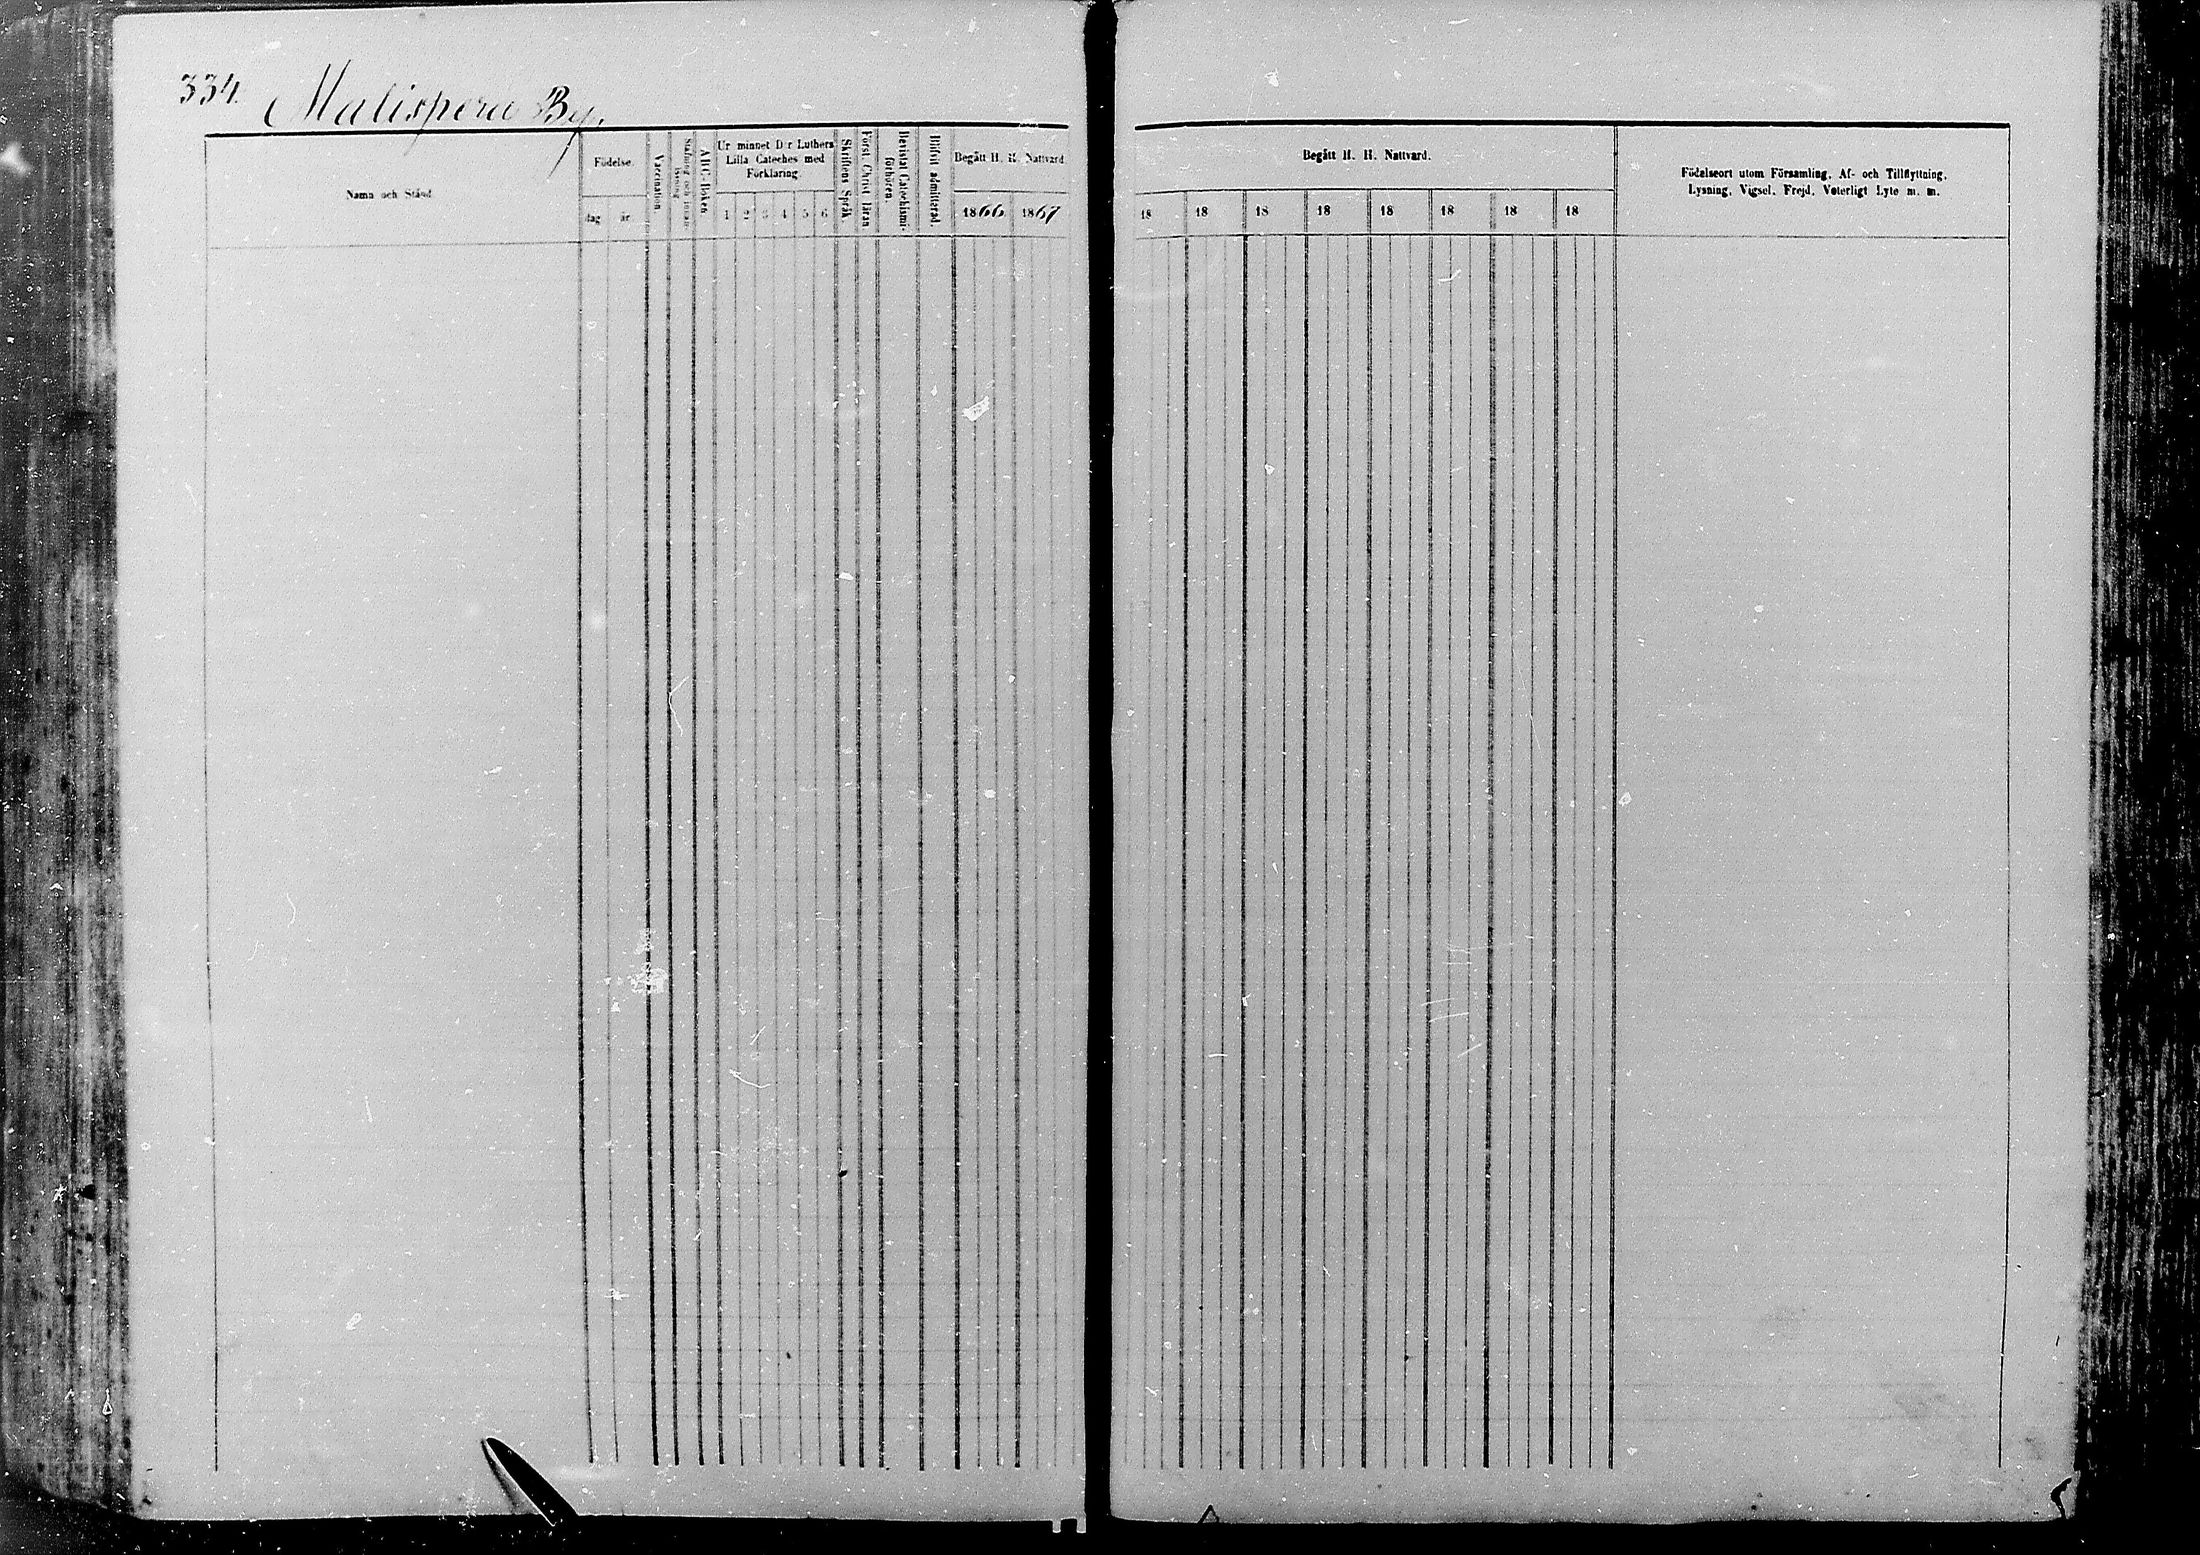 334. Malispera By.
Namn och Stånd
Födelse.
dag år
Vaccination.
Stafning och Innan-
läsning
ABC-Boken
Ur minnet D:r Luthers
Lilla Cateches med
Förklaring.
1 2 3 4 5 6
Skriftens Språk.
Först. Christ. läran
Bevistat Catechismi-
förhören.
Blifvit admitterad.
Begått H. H. Nattvard.
1866 1867
Begått H. H. Nattvard.
18 18 18 18 18 18 18 18
Födelseort utom Församling, Af- och Tillflyttning,
Lysning, Vigsel, Frejd, Veterligt Lyte m. m.